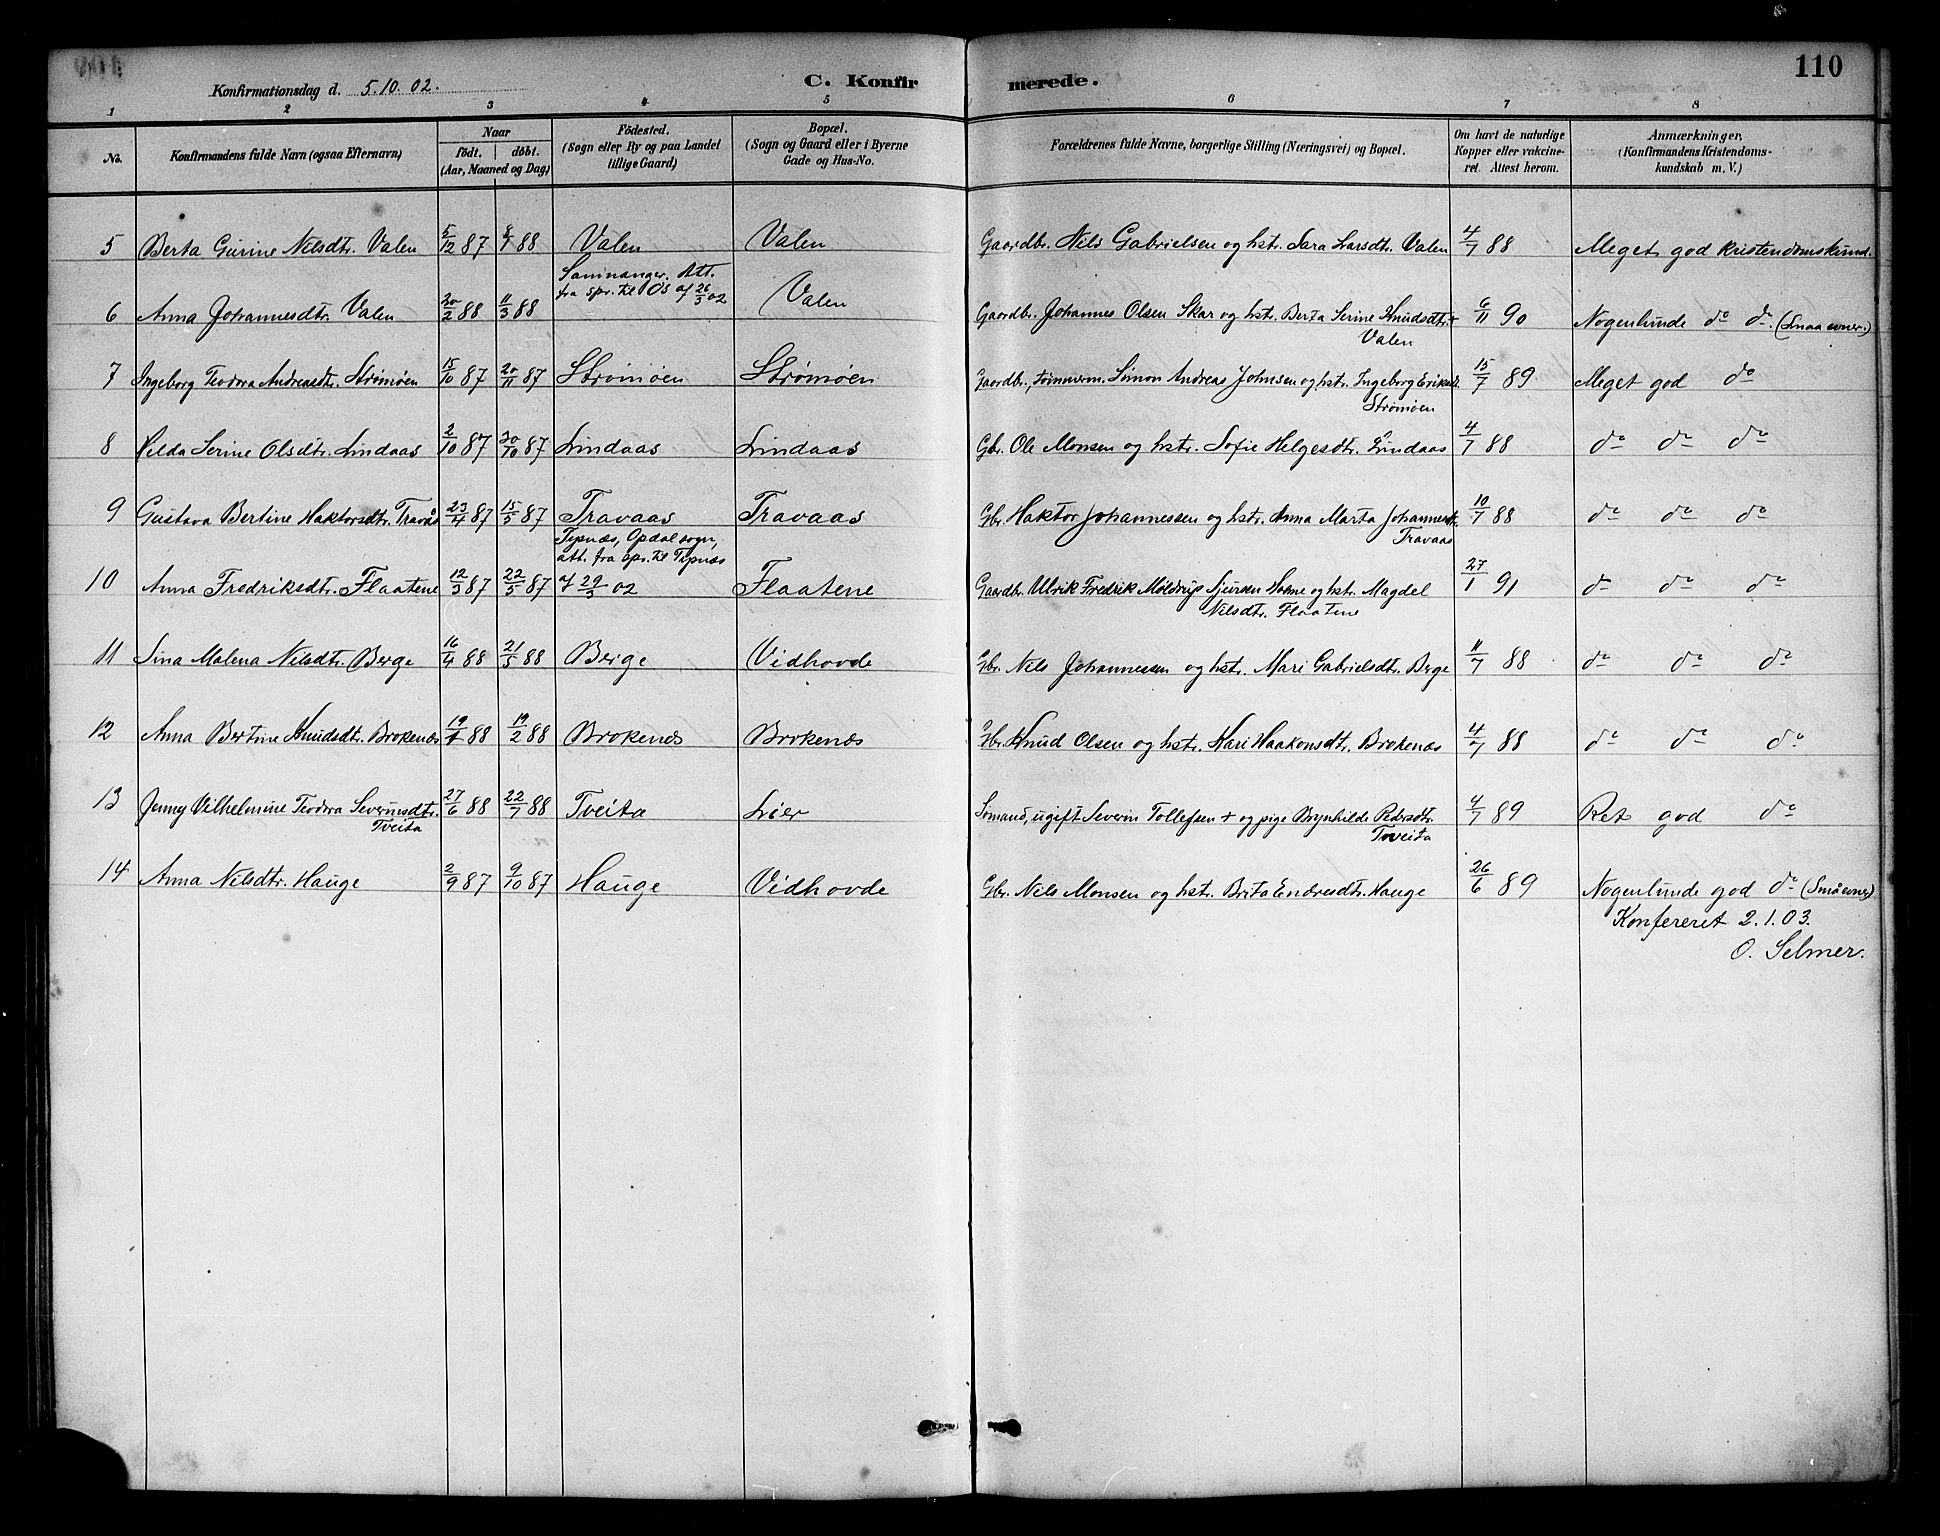 110
Konfirmationsdag d. 5.10.02.
C. Konfirmerede.
1 2 3 4 5 6 7 8
No. Konfirmandens fulde Navn (ogsaa Efternavn) Naar födt. döbt. (Aar, Maaned og Dag) Födested. (Sogn eller By og paa Landet tillige Gaard) Bopæl. (Sogn og Gaard eller i Byerne Gade og Hus-No. Forældrenes fulde Navne, borgerlige Stilling (Næringsvei) og Bopæl. Om havt de naturlige Kopper eller vakcineret. Attest herom. Anmærkninger. (Konfirmandens Kristendomskundskab m. V.)
5 Berta Gurine Nilsdtr. Valen 5/12 87 8/1 88 Valen Valen Gaardbr. Nils Gabrielsen og hstr. Sara Larsdt. Valen 4/7 88 Meget god kristendomskund.
Saminanger. Att.
fra spr. til Os af 26/3 02
6 Anna Johannesdtr. Valen 20/2 88 11/3 88 Valen Gaardbr. Johannes Olsen Skar og hstr. Berta Serine Knudsdtr. + 6/11 90 Nogenlunde do do (Smaa evner.)
Valen
7 Ingeborg Teodora Andreasdtr. Strømøen 15/10 87 20/11 87 Strømøen Strømøen Gaardbr., tømmerm. Simon Andreas Johnsen og hstr. Ingeborg Eriksd. 15/7 89 Meget god do
Strømøen
8 Pelda Serine Olsdtr. Lindaas 2/10 87 30/10 87 Lindaas Lindaas Gbr. Ole Monsen og hstr. Sofie Helgesdtr. Lindaas 4/7 88 do do do
9 Gustava Bertine Haktorsdtr. Travås 23/4 87 15/5 87 Travaas Travaas Gbr. Haktor Johannessen og hstr. Anna Marta Johannesdt. 10/7 88 do do do
Travaas
Tepnæs, Opdal sogn,
att. fra spr. til Tepnæs
10 Anna Fredriksdtr. Flaatene 12/3 87 22/5 87 af 29/3 02 Flaatene Gaardbr. Ulrik Fredrik Møldrup Sjursen Holme og hstr. Magdel 27/1 91 do do do
Nilsdtr. Flaatene
11 Sina Malena Nilsdtr. Berge 16/4 88 21/5 88 Berge Vidhovde Gbr. Nils Johannessen og hstr. Mari Gabrielsdtr. Berge 11/7 88 do do do
12 Anna Bertine Knudsdt. Brokenæs 19/1 88 19/2 88 Brokenæs Brokenæs Gbr. Knud Olsen og hstr. Kari Haakonsdtr. Brokenæs 4/7 88 do do do
13 Jenny Vilhelmine Teodora Severinsdtr. 27/6 88 22/7 88 Tveita Lier Sømand, ugift Severin Tollefsen + og pige Brynhilde Pedersdtr. 4/7 89 Ret god do
Tveita Tveita
14 Anna Nilsdtr. Hauge 2/9 87 9/10 87 Hauge Vidhovde Gbr. Nils Monsen og hstr. Brita Endresdtr. Hauge 26/6 89 Nogenlunde god do (Små evner)
Konfereret 2.1.03.
O. Selmer.